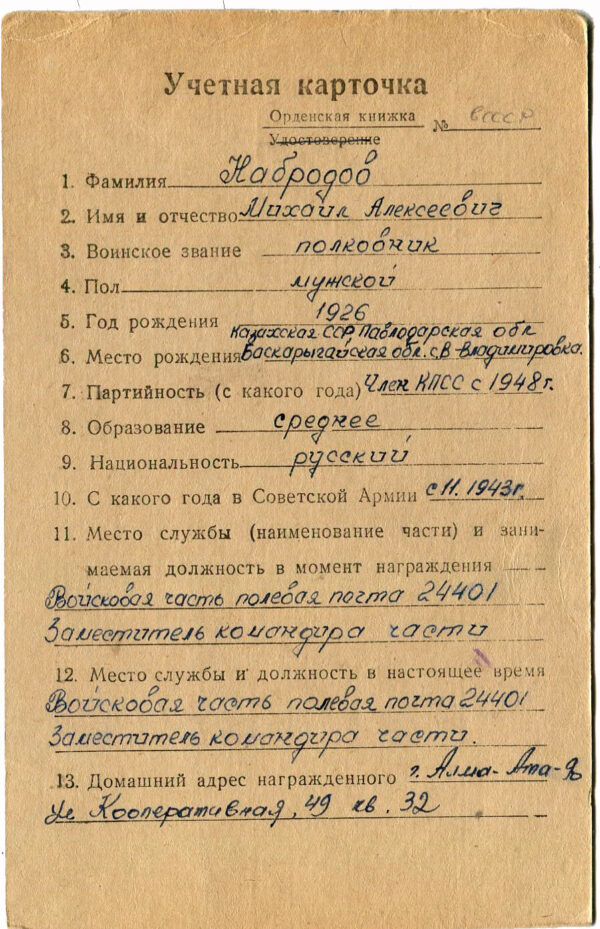 Учетная карточка
Орденская книжка № СССР
Удостоверение
1. Фамилия Набродов
2. Имя и отчество Михаил Алексеевич
3. Воинское звание полковник
4. Пол мужской
5. Год рождения 1926
Казахская ССР Павлодарская обл
6. Место рождения Баскарыгайская обл. с. В-Владимировка.
7. Партийность (с какого года) Член КПСС с 1948 г.
8. Образование среднее
9. Национальность русский
10. С какого года в Советской Армии с 11. 1943 г.
11. Место службы (наименование части) и зани-
маемая должность в момент награждения
Войсковая часть полевая почта 24401
Заместитель командира части
12. Место службы и должность в настоящее время
Войсковая часть полевая почта 24401
Заместитель командира части.
13. Домашний адрес награжденного г. Алма-Ата-
ул Кооперативная, 49 кв. 32